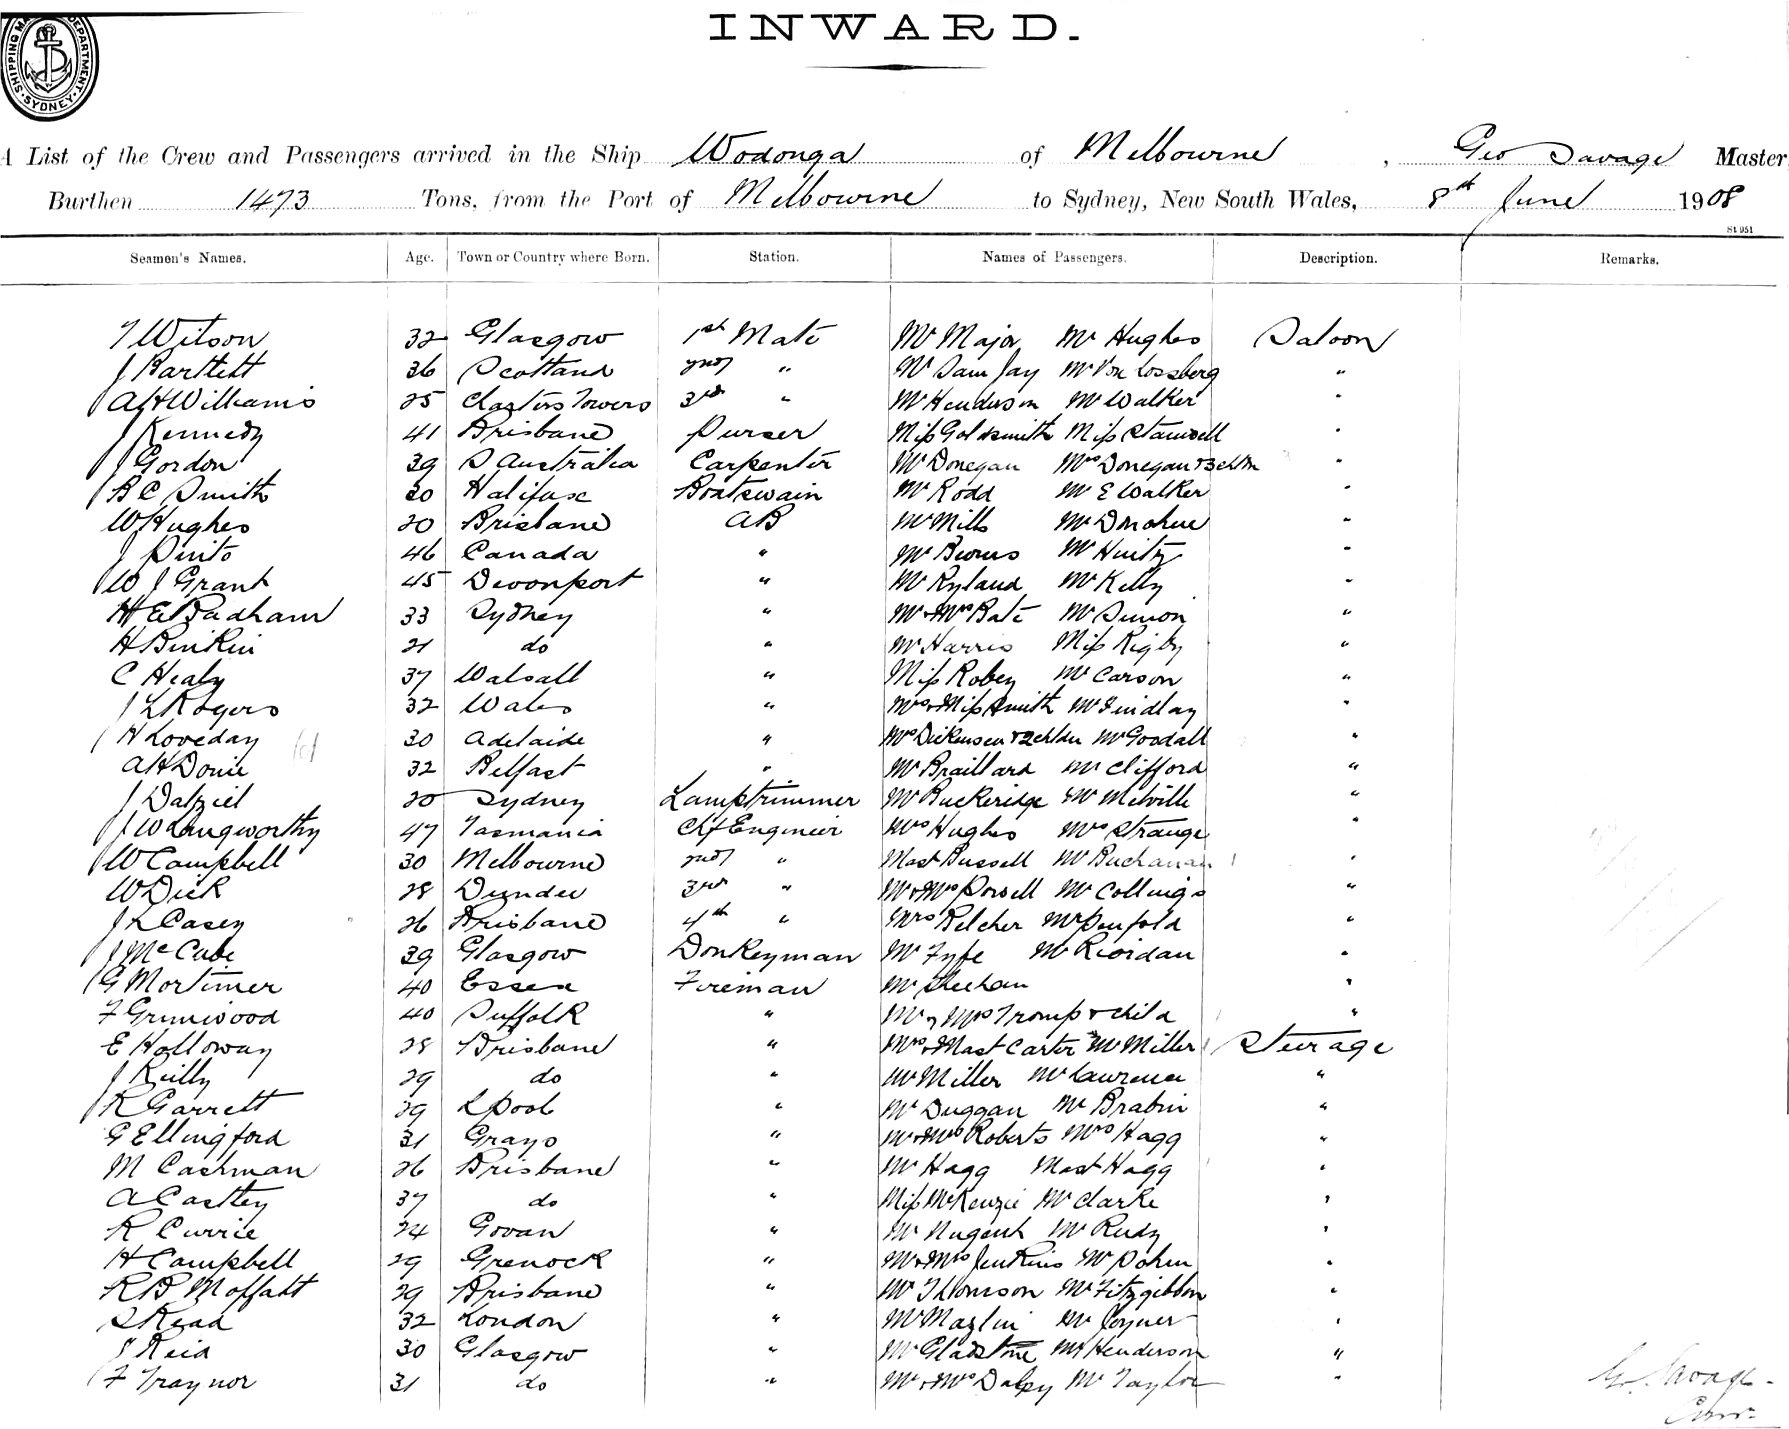 INWARD.
SHIPPING MA DEPARTMENT. SYDNEY.
A List of the Crew and Passengers arrived in the Ship Wodonga of Melbourne, Geo Savage Master
Burthen 1473 Tons, from the Port of Melbourne to Sydney, New South Wales, 8th June 1908
St 951
Seamen's Names. Age. Town or Country where Born. Station. Names of Passengers. Description. Remarks.
T Wilson 32 Glasgow 1st Mate Mr Major Mr Hughes Saloon
J Bartlett 36 Scotland 2nd " Mr Sam Jay Mr Von Lossberg "
A H Williams 25 Charters Towers 3rd " Mr Henderson Mr Walker "
J Kennedy 41 Brisbane Purser Miss Goldsmith Miss Stanwell "
J Gordon 39 S Australia Carpenter Mr Donegan Mrs Donegan & 3 chldn "
B C Smith 30 Halifax Boatswain Mr Rodd Mr E Walker "
W Hughes 20 Brisbane AB Mr Mills Mr Donohue "
J Pinto 46 Canada " Mr Mr "
W J Grant 45 Devonport " Mr Ryland Mr Kelly "
H E Badham 33 Sydney " Mr & Mrs Bate Mr Simon "
H Binkin 21 do " Mr Harris Miss Rigby "
C Healy 37 Walsall " Miss Robey Mr Carson "
J L Rogers 32 Wales " Mrs & Miss Smith Mr Findlay "
H Loveday 30 Adelaide " Mrs Dickenson & 2 chldn Mr Goodall "
A H Donie 32 Belfast " Mr Braillard Mr Clifford "
J Dalziel 20 Sydney Lamptrimmer Mr Buckeridge Mr Melville "
J W Langworthy 47 Tasmania Chf Engineer Mrs Hughes Mrs Strange "
W Campbell 30 Melbourne 2nd " Mast Bussell Mr Buchanan "
W Dick 28 Dundee 3rd " Mr & Mrs Powell Mr Collings "
J L Casey 26 Brisbane 4th " Mrs Belcher Mr Penfold "
J McCabe 39 Glasgow Donkeyman Mr Fyfe Mr Riordan "
G Mortimer 40 Essex Fireman Mr Sheehan "
F Grimwood 40 Suffolk " Mr & Mrs Tromp & child "
E Holloway 28 Brisbane " Mrs & Mast Carter Mr Miller Steerage
J Reilly 29 do " Mr Miller Mr Lawrence "
R Garrett 29 Lpool " Mr Duggan Mr Brabin "
G Ellingford 31 Grays " Mr & Mrs Roberts Mrs Hagg "
M Cashman 26 Brisbane " Mr Hagg Mast Hagg "
A Castley 37 do " Miss McKenzie Mr Clarke "
R Currie 24 Govan " Mr Nugent Mr Rudy "
H Campbell 29 Grenock " Mr & Mrs Jenkins Mr "
R B Moffatt 29 Brisbane " Mr Thomson Mr Fitzgibbon "
S Read 32 London " Mr Mazlin Mr Joyner "
J Reid 30 Glasgow " Mr Gladstone Mr Henderson "
F Traynor 31 do " Mr & Mrs Dalpy Mr Taylor "
G. Savage